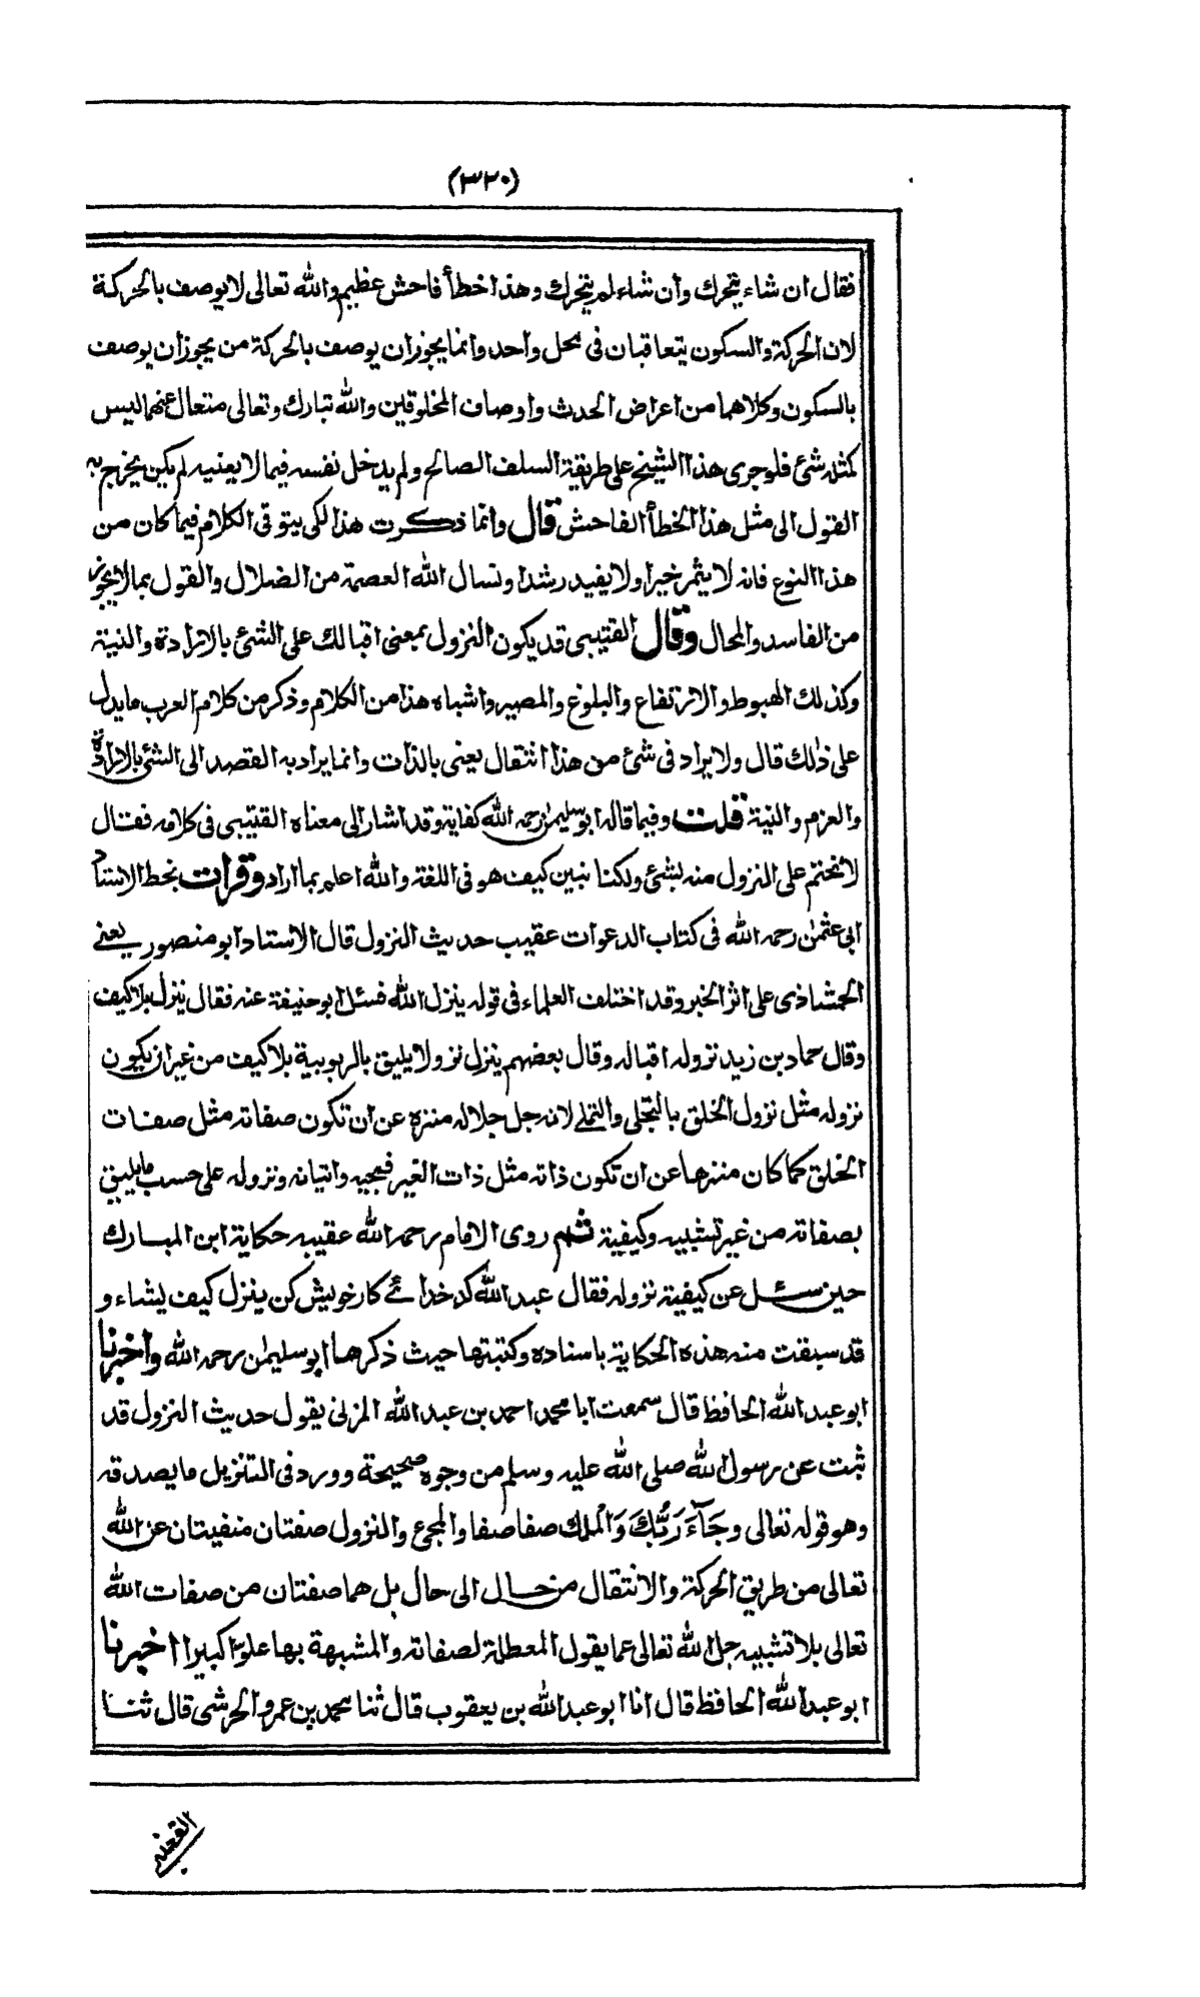 (٣٢٠)
فقال ان شاء يتحرك وان شاء لم يتحرك وهذا خطأ فاحش عظيم والله تعالى لا يوصف بالحركة
لان الحركة والسكون يتعاقبان فى محل واحد وانما يجوز ان يوصف بالحركة من يجوز ان يوصف
بالسكون وكلاهما من اعراض الحدث واوصاف المخلوقين والله تبارك وتعالى متعال عنهما ليس
كمثله شئ فلو جرى هذا الشيخ على طريقة السلف الصالح ولم يدخل نفسه فيما لا يعنيه لم يكن يخرج به
القول الى مثل هذا الخطأ الفاحش قال وانما ذكرت هذا لكى يتوقى الكلام فيما كان من
هذا النوع فانه لا يثمر خيرا ولا يفيد رشدا ونسال الله العصمة من الضلال والقول بما لا يجوز
من الفاسد والمحال وقال القتيبى قد يكون النزول بمعنى اقبالك على الشئ بالارادة والنية
وكذلك الهبوط والارتفاع والبلوغ والمصير واشباه هذا من الكلام وذكر من كلام العرب ما يدل
على ذلك قال ولا يراد فى شئ من هذا انتقال يعنى بالذات وانما يراد به القصد الى الشئ بالارادة
والعزم والنية قلت وفيما قاله ابو سليمٰن رحمه الله كفاية وقد اشار الى معناه القتيبى فى كلامه فقال
لا نختم على النزول منه بشئ ولكنا نبين كيف هو فى اللغة والله اعلم بما اراد وقرات بخط الاستاد
ابى عثمٰن رحمه الله فى كتاب الدعوات عقيب حديث النزول قال الاستاد ابو منصور يعنے
الحمشاذى على اثر الخبر وقد اختلف العلماء فى قوله ينزل الله فسئل ابو حنيفة عنه فقال ينزل بلا كيف
وقال حماد بن زيد نزوله اقباله وقال بعضهم ينزل نزولا يليق بالربوبية بلا كيف من غير ان يكون
نزوله مثل نزول الخلق بالتجلى والتملى لانه جل جلاله منزه عن ان تكون صفاته مثل صفات
الخلق كما كان منزها عن ان تكون ذاته مثل ذات الغير فمجيه واتيانه ونزوله على حسب ما يليق
بصفاته من غير تشبيه وكيفية ثم روى الامام رحمه الله عقيبه حكاية ابن المبارك
حين سئل عن كيفية نزوله فقال عبد الله كد خدائے كار خويش كن ينزل كيف يشاء و
قد سبقت منه هذه الحكاية باسناده وكتبتها حيث ذكرها ابو سليمٰن رحمه الله واخبرنا
ابو عبد الله الحافظ قال سمعت ابا محمد احمد بن عبد الله المزنى يقول حديث النزول قد
ثبت عن رسول الله صلى الله عليه وسلم من وجوه صحيحة وورد فى التنزيل ما يصدقه
وهو قوله تعالى وَجَآءَ رَبُّكَ وَالْملك صفا صفا والمجئ والنزول صفتان منفيتان عن الله
تعالى من طريق الحركة والانتقال من حال الى حال بل هما صفتان من صفات الله
تعالى بلا تشبيه جل الله تعالى عما يقول المعطلة لصفاته والمشبهة بها علوّا كبيرا اخبرنا
ابو عبد الله الحافظ قال انا ابو عبد الله بن يعقوب قال ثنا محمد بن عمرو الحرشى قال ثنا
القعنبى